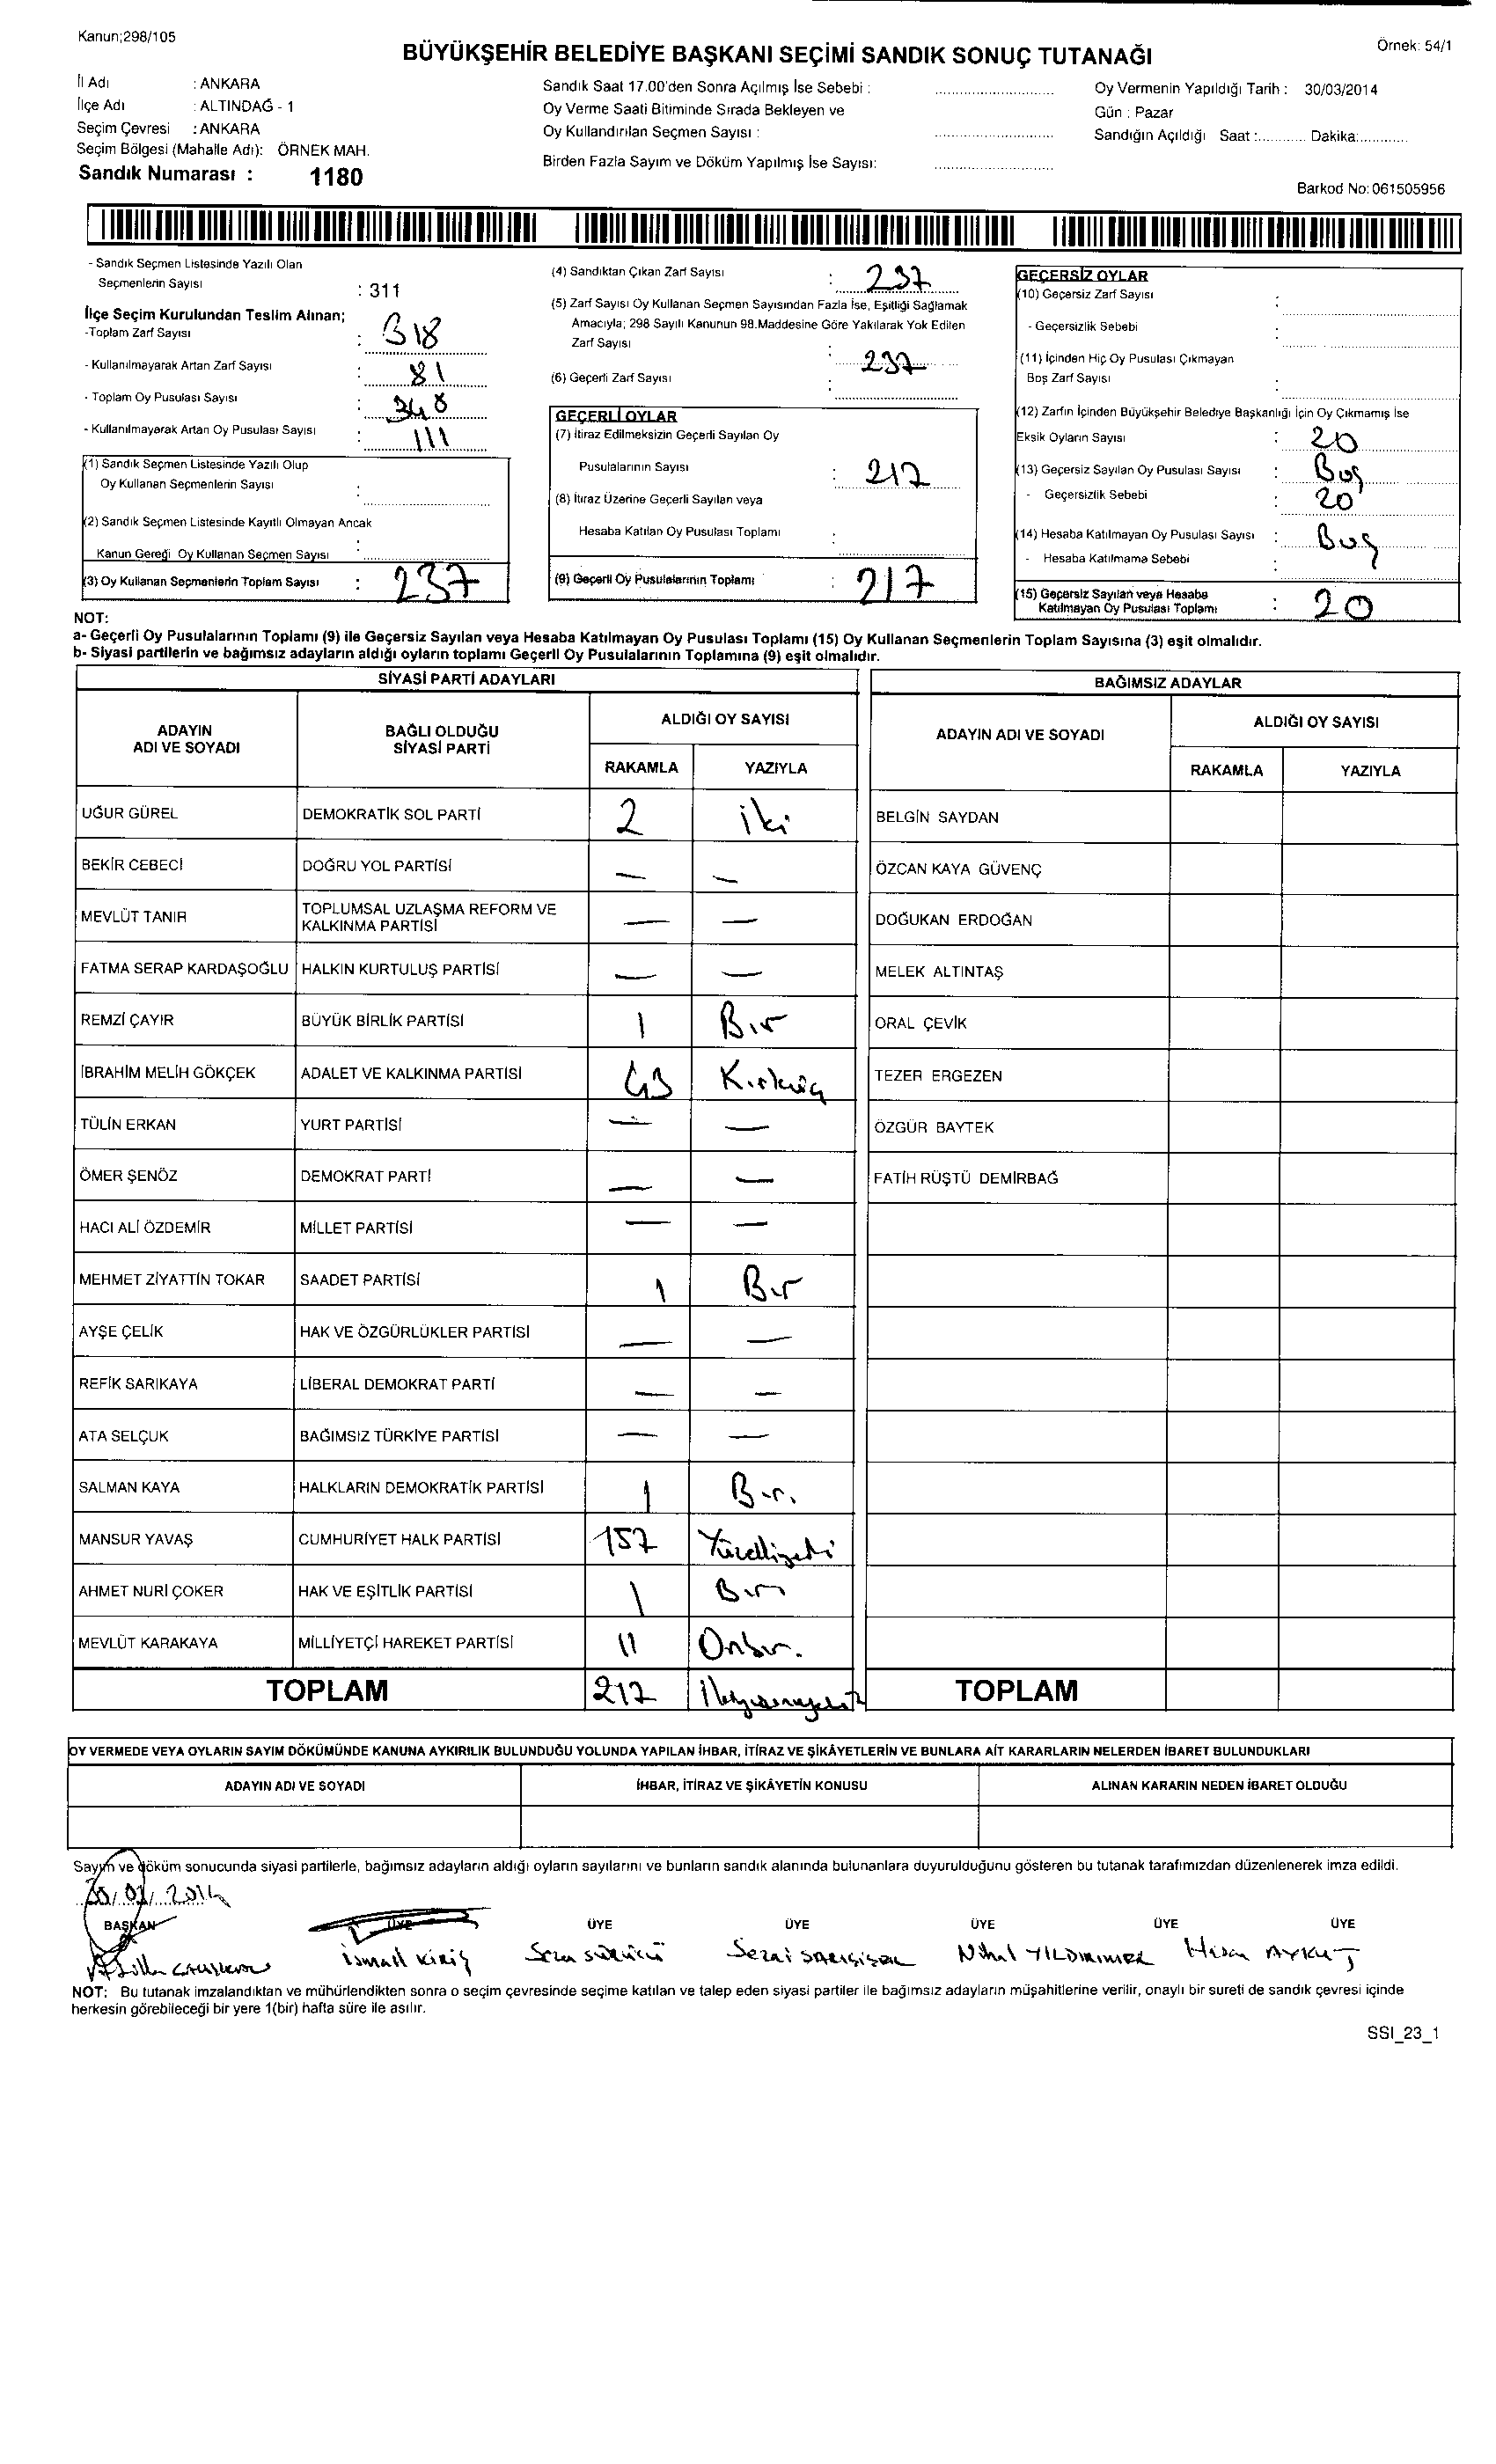 Kanun;298/105
Örnek: 54/1
BÜYÜKŞEHİR BELEDİYE BAŞKANI SEÇİMİ SANDIK SONUÇ TUTANAĞI
İl Adı : ANKARA
İlçe Adı : ALTINDAĞ - 1
Seçim Çevresi : ANKARA
Seçim Bölgesi (Mahalle Adı): ÖRNEK MAH.
Sandık Numarası : 1180
Sandık Saat 17.00'den Sonra Açılmış İse Sebebi :
Oy Verme Saati Bitiminde Sırada Bekleyen ve
Oy Kullandırılan Seçmen Sayısı :
Birden Fazla Sayım ve Döküm Yapılmış İse Sayısı:
Oy Vermenin Yapıldığı Tarih : 30/03/2014
Gün : Pazar
Sandığın Açıldığı Saat :............ Dakika:............
Barkod No: 061505956
- Sandık Seçmen Listesinde Yazılı Olan
Seçmenlerin Sayısı : 311
İlçe Seçim Kurulundan Teslim Alınan;
-Toplam Zarf Sayısı : 318
- Kullanılmayarak Artan Zarf Sayısı : 81
- Toplam Oy Pusulası Sayısı : 348
- Kullanılmayarak Artan Oy Pusulası Sayısı : 111
(1) Sandık Seçmen Listesinde Yazılı Olup
Oy Kullanan Seçmenlerin Sayısı :
(2) Sandık Seçmen Listesinde Kayıtlı Olmayan Ancak
Kanun Gereği Oy Kullanan Seçmen Sayısı :
(3) Oy Kullanan Seçmenlerin Toplam Sayısı : 237
(4) Sandıktan Çıkan Zarf Sayısı : 237
(5) Zarf Sayısı Oy Kullanan Seçmen Sayısından Fazla İse, Eşitliği Sağlamak
Amacıyla; 298 Sayılı Kanunun 98.Maddesine Göre Yakılarak Yok Edilen
Zarf Sayısı : 237
(6) Geçerli Zarf Sayısı :
GEÇERLİ OYLAR
(7) İtiraz Edilmeksizin Geçerli Sayılan Oy
Pusulalarının Sayısı : 217
(8) İtiraz Üzerine Geçerli Sayılan veya
Hesaba Katılan Oy Pusulası Toplamı :
(9) Geçerli Oy Pusulalarının Toplamı : 217
GEÇERSİZ OYLAR
(10) Geçersiz Zarf Sayısı :
- Geçersizlik Sebebi :
(11) İçinden Hiç Oy Pusulası Çıkmayan
Boş Zarf Sayısı :
(12) Zarfın İçinden Büyükşehir Belediye Başkanlığı İçin Oy Çıkmamış İse
Eksik Oyların Sayısı : 20
(13) Geçersiz Sayılan Oy Pusulası Sayısı : Boş
- Geçersizlik Sebebi : 20
(14) Hesaba Katılmayan Oy Pusulası Sayısı : Boş
- Hesaba Katılmama Sebebi :
(15) Geçersiz Sayılan veya Hesaba
Katılmayan Oy Pusulası Toplamı : 20
NOT:
a- Geçerli Oy Pusulalarının Toplamı (9) ile Geçersiz Sayılan veya Hesaba Katılmayan Oy Pusulası Toplamı (15) Oy Kullanan Seçmenlerin Toplam Sayısına (3) eşit olmalıdır.
b- Siyasi partilerin ve bağımsız adayların aldığı oyların toplamı Geçerli Oy Pusulalarının Toplamına (9) eşit olmalıdır.
SİYASİ PARTİ ADAYLARI
ADAYIN ADI VE SOYADI BAĞLI OLDUĞU SİYASİ PARTİ ALDIĞI OY SAYISI
RAKAMLA YAZIYLA
UĞUR GÜREL DEMOKRATİK SOL PARTİ 2 iki
BEKİR CEBECİ DOĞRU YOL PARTİSİ — —
MEVLÜT TANIR TOPLUMSAL UZLAŞMA REFORM VE KALKINMA PARTİSİ — —
FATMA SERAP KARDAŞOĞLU HALKIN KURTULUŞ PARTİSİ — —
REMZİ ÇAYIR BÜYÜK BİRLİK PARTİSİ 1 Bir
İBRAHİM MELİH GÖKÇEK ADALET VE KALKINMA PARTİSİ 43 Kırküç
TÜLİN ERKAN YURT PARTİSİ — —
ÖMER ŞENÖZ DEMOKRAT PARTİ — —
HACI ALİ ÖZDEMİR MİLLET PARTİSİ — —
MEHMET ZİYATTİN TOKAR SAADET PARTİSİ 1 Bir
AYŞE ÇELİK HAK VE ÖZGÜRLÜKLER PARTİSİ — —
REFİK SARIKAYA LİBERAL DEMOKRAT PARTİ — —
ATA SELÇUK BAĞIMSIZ TÜRKİYE PARTİSİ — —
SALMAN KAYA HALKLARIN DEMOKRATİK PARTİSİ 1 Bir.
MANSUR YAVAŞ CUMHURİYET HALK PARTİSİ 157 Yüzelliyedi
AHMET NURİ ÇOKER HAK VE EŞİTLİK PARTİSİ 1 Bir
MEVLÜT KARAKAYA MİLLİYETÇİ HAREKET PARTİSİ 11 Onbir.
TOPLAM 217
BAĞIMSIZ ADAYLAR
ADAYIN ADI VE SOYADI ALDIĞI OY SAYISI
RAKAMLA YAZIYLA
BELGİN SAYDAN
ÖZCAN KAYA GÜVENÇ
DOĞUKAN ERDOĞAN
MELEK ALTINTAŞ
ORAL ÇEVİK
TEZER ERGEZEN
ÖZGÜR BAYTEK
FATİH RÜŞTÜ DEMİRBAĞ
TOPLAM
OY VERMEDE VEYA OYLARIN SAYIM DÖKÜMÜNDE KANUNA AYKIRILIK BULUNDUĞU YOLUNDA YAPILAN İHBAR, İTİRAZ VE ŞİKÂYETLERİN VE BUNLARA AİT KARARLARIN NELERDEN İBARET BULUNDUKLARI
ADAYIN ADI VE SOYADI İHBAR, İTİRAZ VE ŞİKÂYETİN KONUSU ALINAN KARARIN NEDEN İBARET OLDUĞU
Sayım ve döküm sonucunda siyasi partilerle, bağımsız adayların aldığı oyların sayılarını ve bunların sandık alanında bulunanlara duyurulduğunu gösteren bu tutanak tarafımızdan düzenlenerek imza edildi.
BAŞKAN ÜYE ÜYE ÜYE ÜYE ÜYE ÜYE
İsmail Kiriş Sezai SARIÇİÇEK Nihal YILDIRIMER AYKUT
NOT: Bu tutanak imzalandıktan ve mühürlendikten sonra o seçim çevresinde seçime katılan ve talep eden siyasi partiler ile bağımsız adayların müşahitlerine verilir, onaylı bir sureti de sandık çevresi içinde
herkesin görebileceği bir yere 1(bir) hafta süre ile asılır.
SSI_23_1